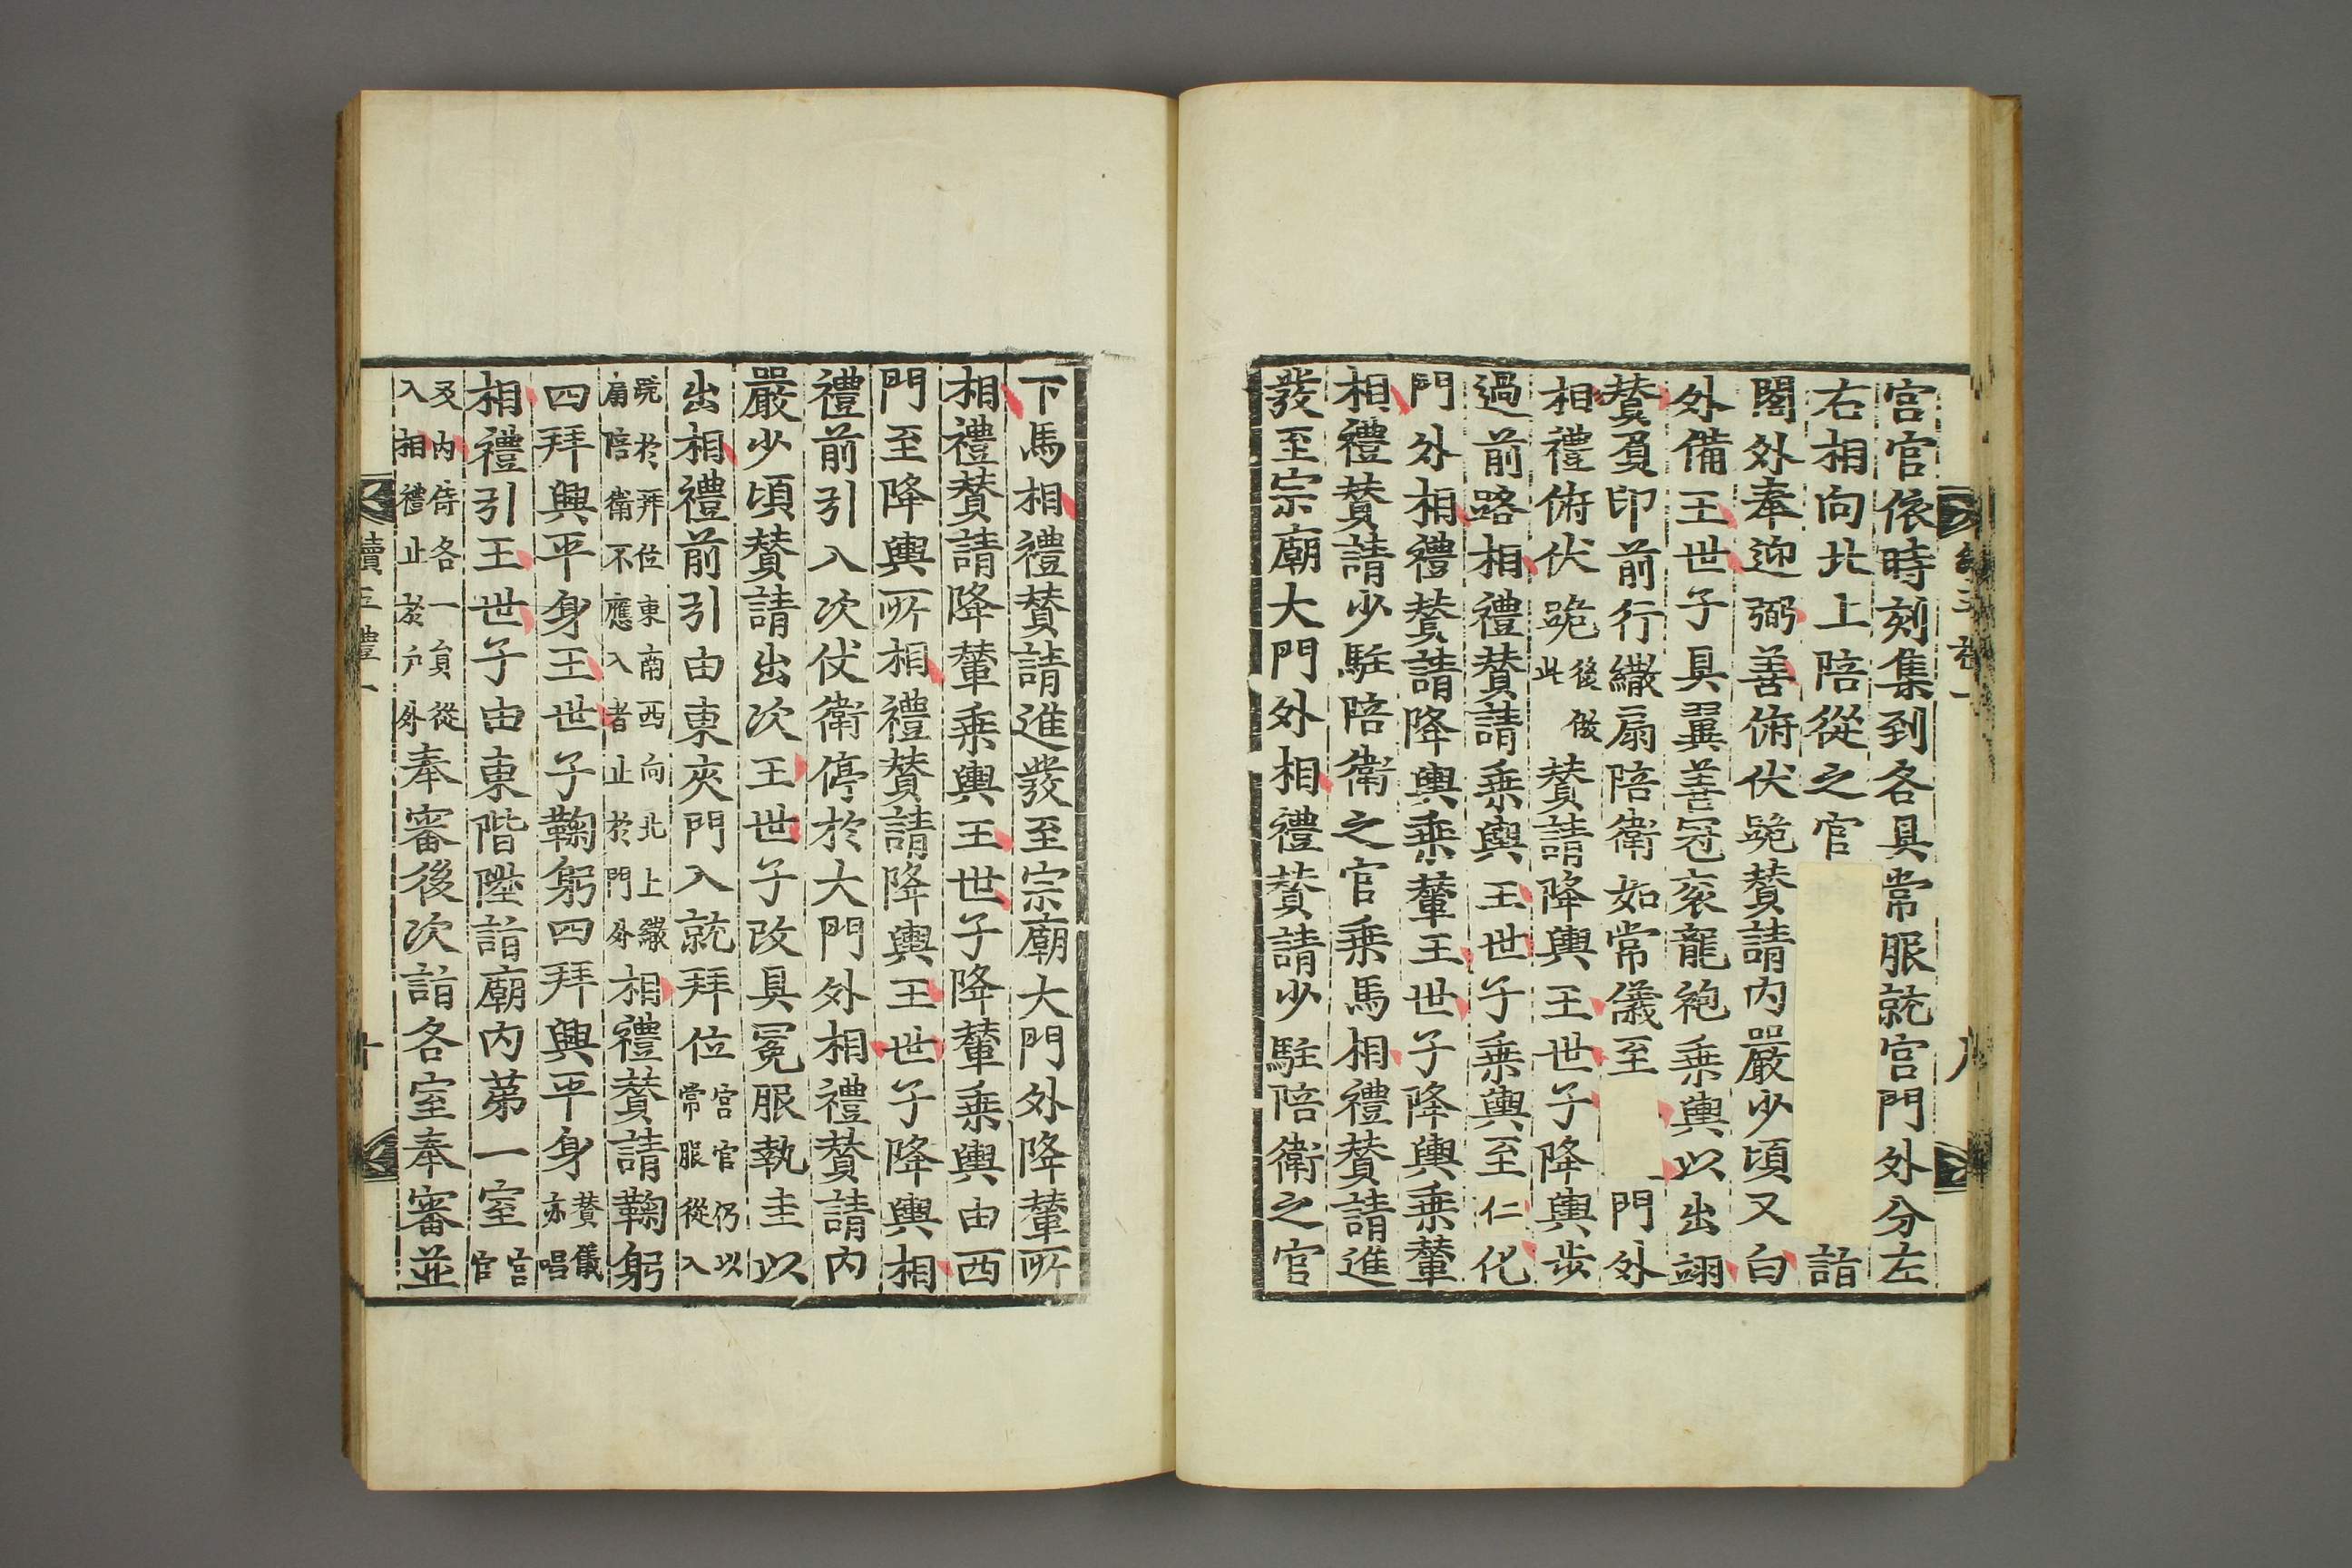 宮官依時刻集到各具常服就宮門外分左
右相向北上陪從之官詣
閤外奉迎弼善俯伏跪贊請內嚴少頃又白
外備王世子具翼善冠袞龍袍乘輿以出翊
贊負印前行繖扇陪衛如常儀至門外
相禮俯伏跪後倣此贊請降輿王世子降輿步
過前路相禮贊請乘輿王世子乘輿至仁化
門外相禮贊請降輿乘輦王世子降輿乘輦
相禮贊請少駐陪衛之官乘馬相禮贊請進
發至宗廟大門外相禮贊請少駐陪衛之官
下馬相禮贊請進發至宗廟大門外降輦所
相禮贊請降輦乘輿王世子降輦乘輿由西
門至降輿所相禮贊請降輿王世子降輿相
禮前引入次仗衛停於大門外相禮贊請內
嚴少頃贊請出次王世子改具冕服執圭以
出相禮前引由東夾門入就拜位宮官仍以常服從入
就於拜位東南西向北上繖扇陪衛不應入者止於門外相禮贊請鞠躬
四拜興平身王世子鞠躬四拜興平身贊儀亦唱
相禮引王世子由東階陞詣廟內第一室宮官
及內侍各一員從入相禮止於戶外奉審後次詣各室奉審並
續五禮一
十